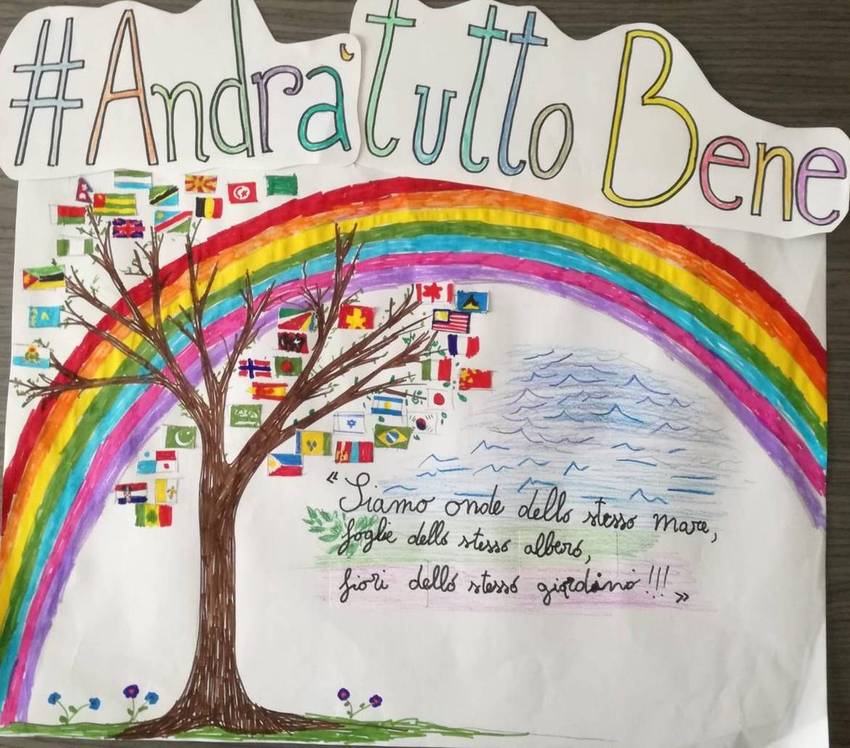 #Andrà tutto Bene
"Siamo onde dello stesso mare,
foglie dello stesso albero,
fiori dello stesso giardino!!!"